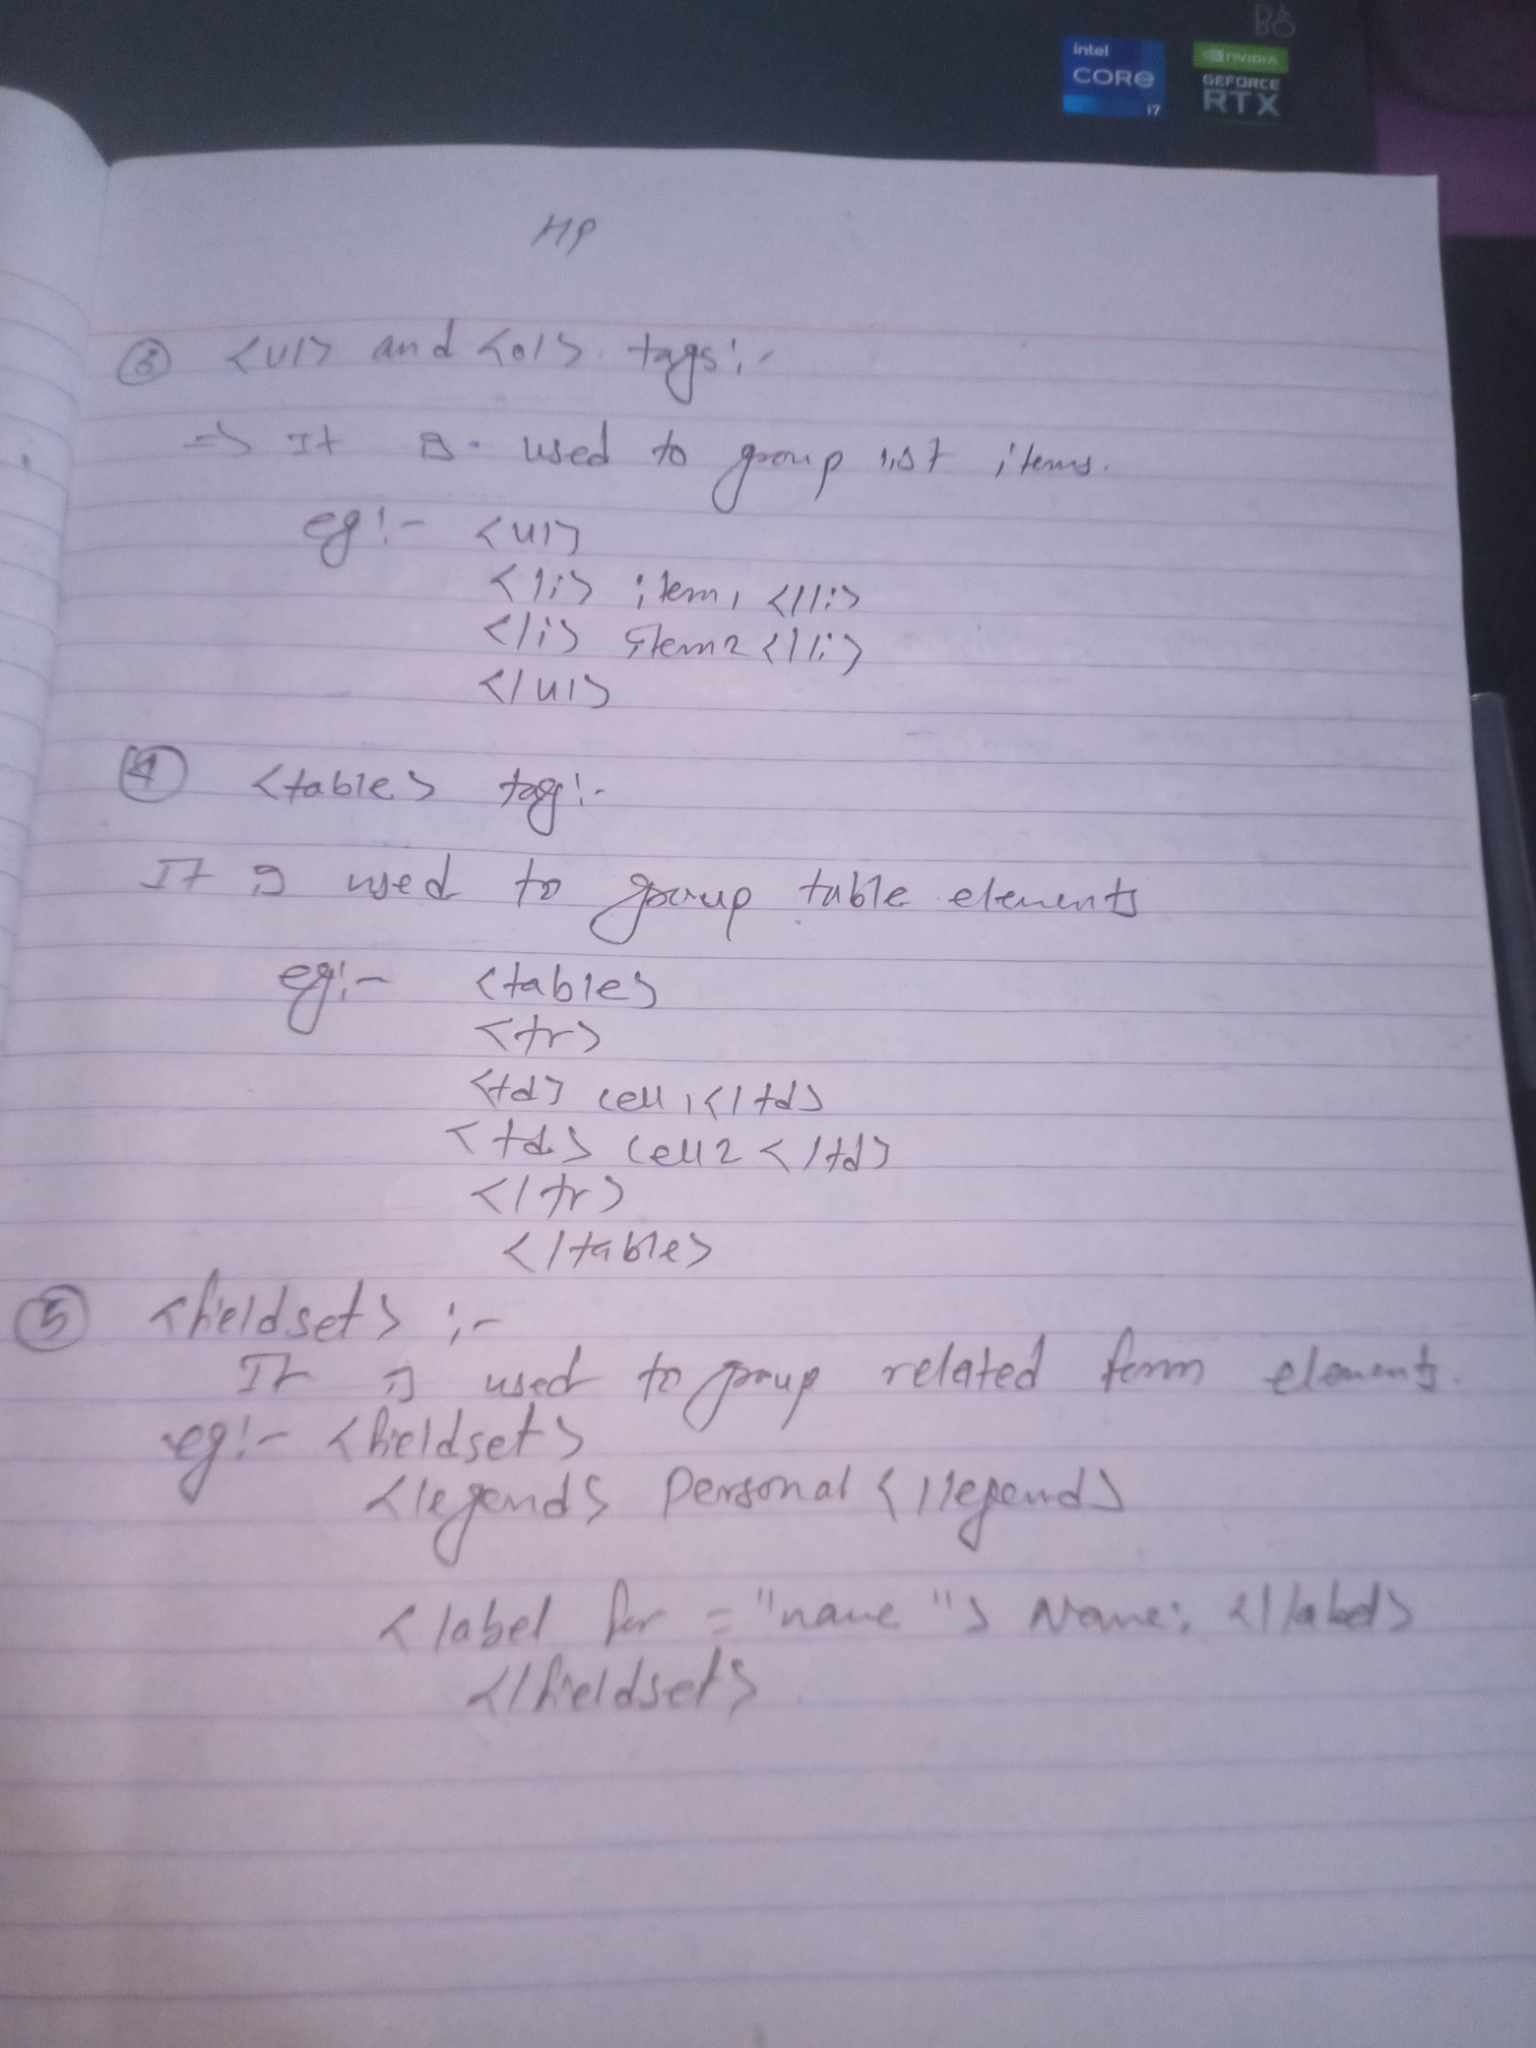 intel
CORE
i7
NVIDIA
GEFORCE
RTX
HP
③ <ul> and <ol> tags:-
=> It is used to group list items.
eg:- <ul>
<li> item1 </li>
<li> item2 </li>
</ul>
④ <table> tag:-
It is used to group table elements
eg:- <table>
<tr>
<td> cell 1 </td>
<td> cell 2 </td>
</tr>
</table>
⑤ <fieldset> :-
It is used to group related form elements.
eg:- <fieldset>
<legend> Personal </legend>
<label for = "name"> Name: </label>
</fieldset>